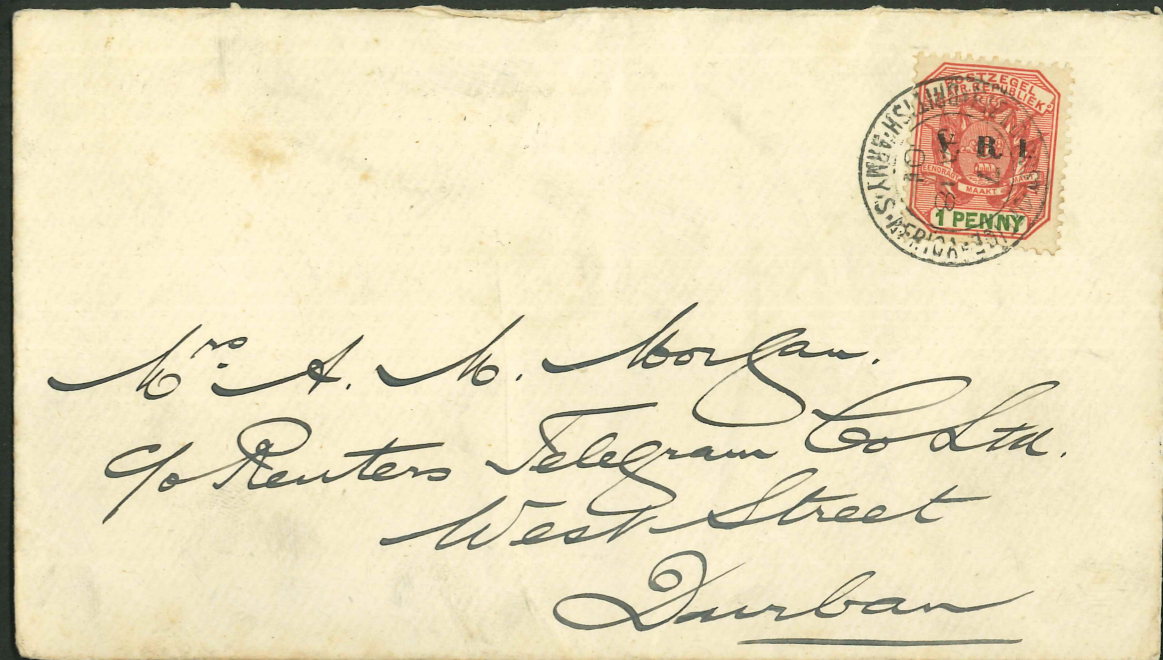 POSTZEGEL
Z. AFR. REPUBLIEK
V R I
EENDRAGT MAAKT MAGT
1 PENNY
BRITISH·ARMY·S·AFRICA
Mrs A. M. Morgan.
c/o Reuters Telegram Co Ltd.
West Street
Durban